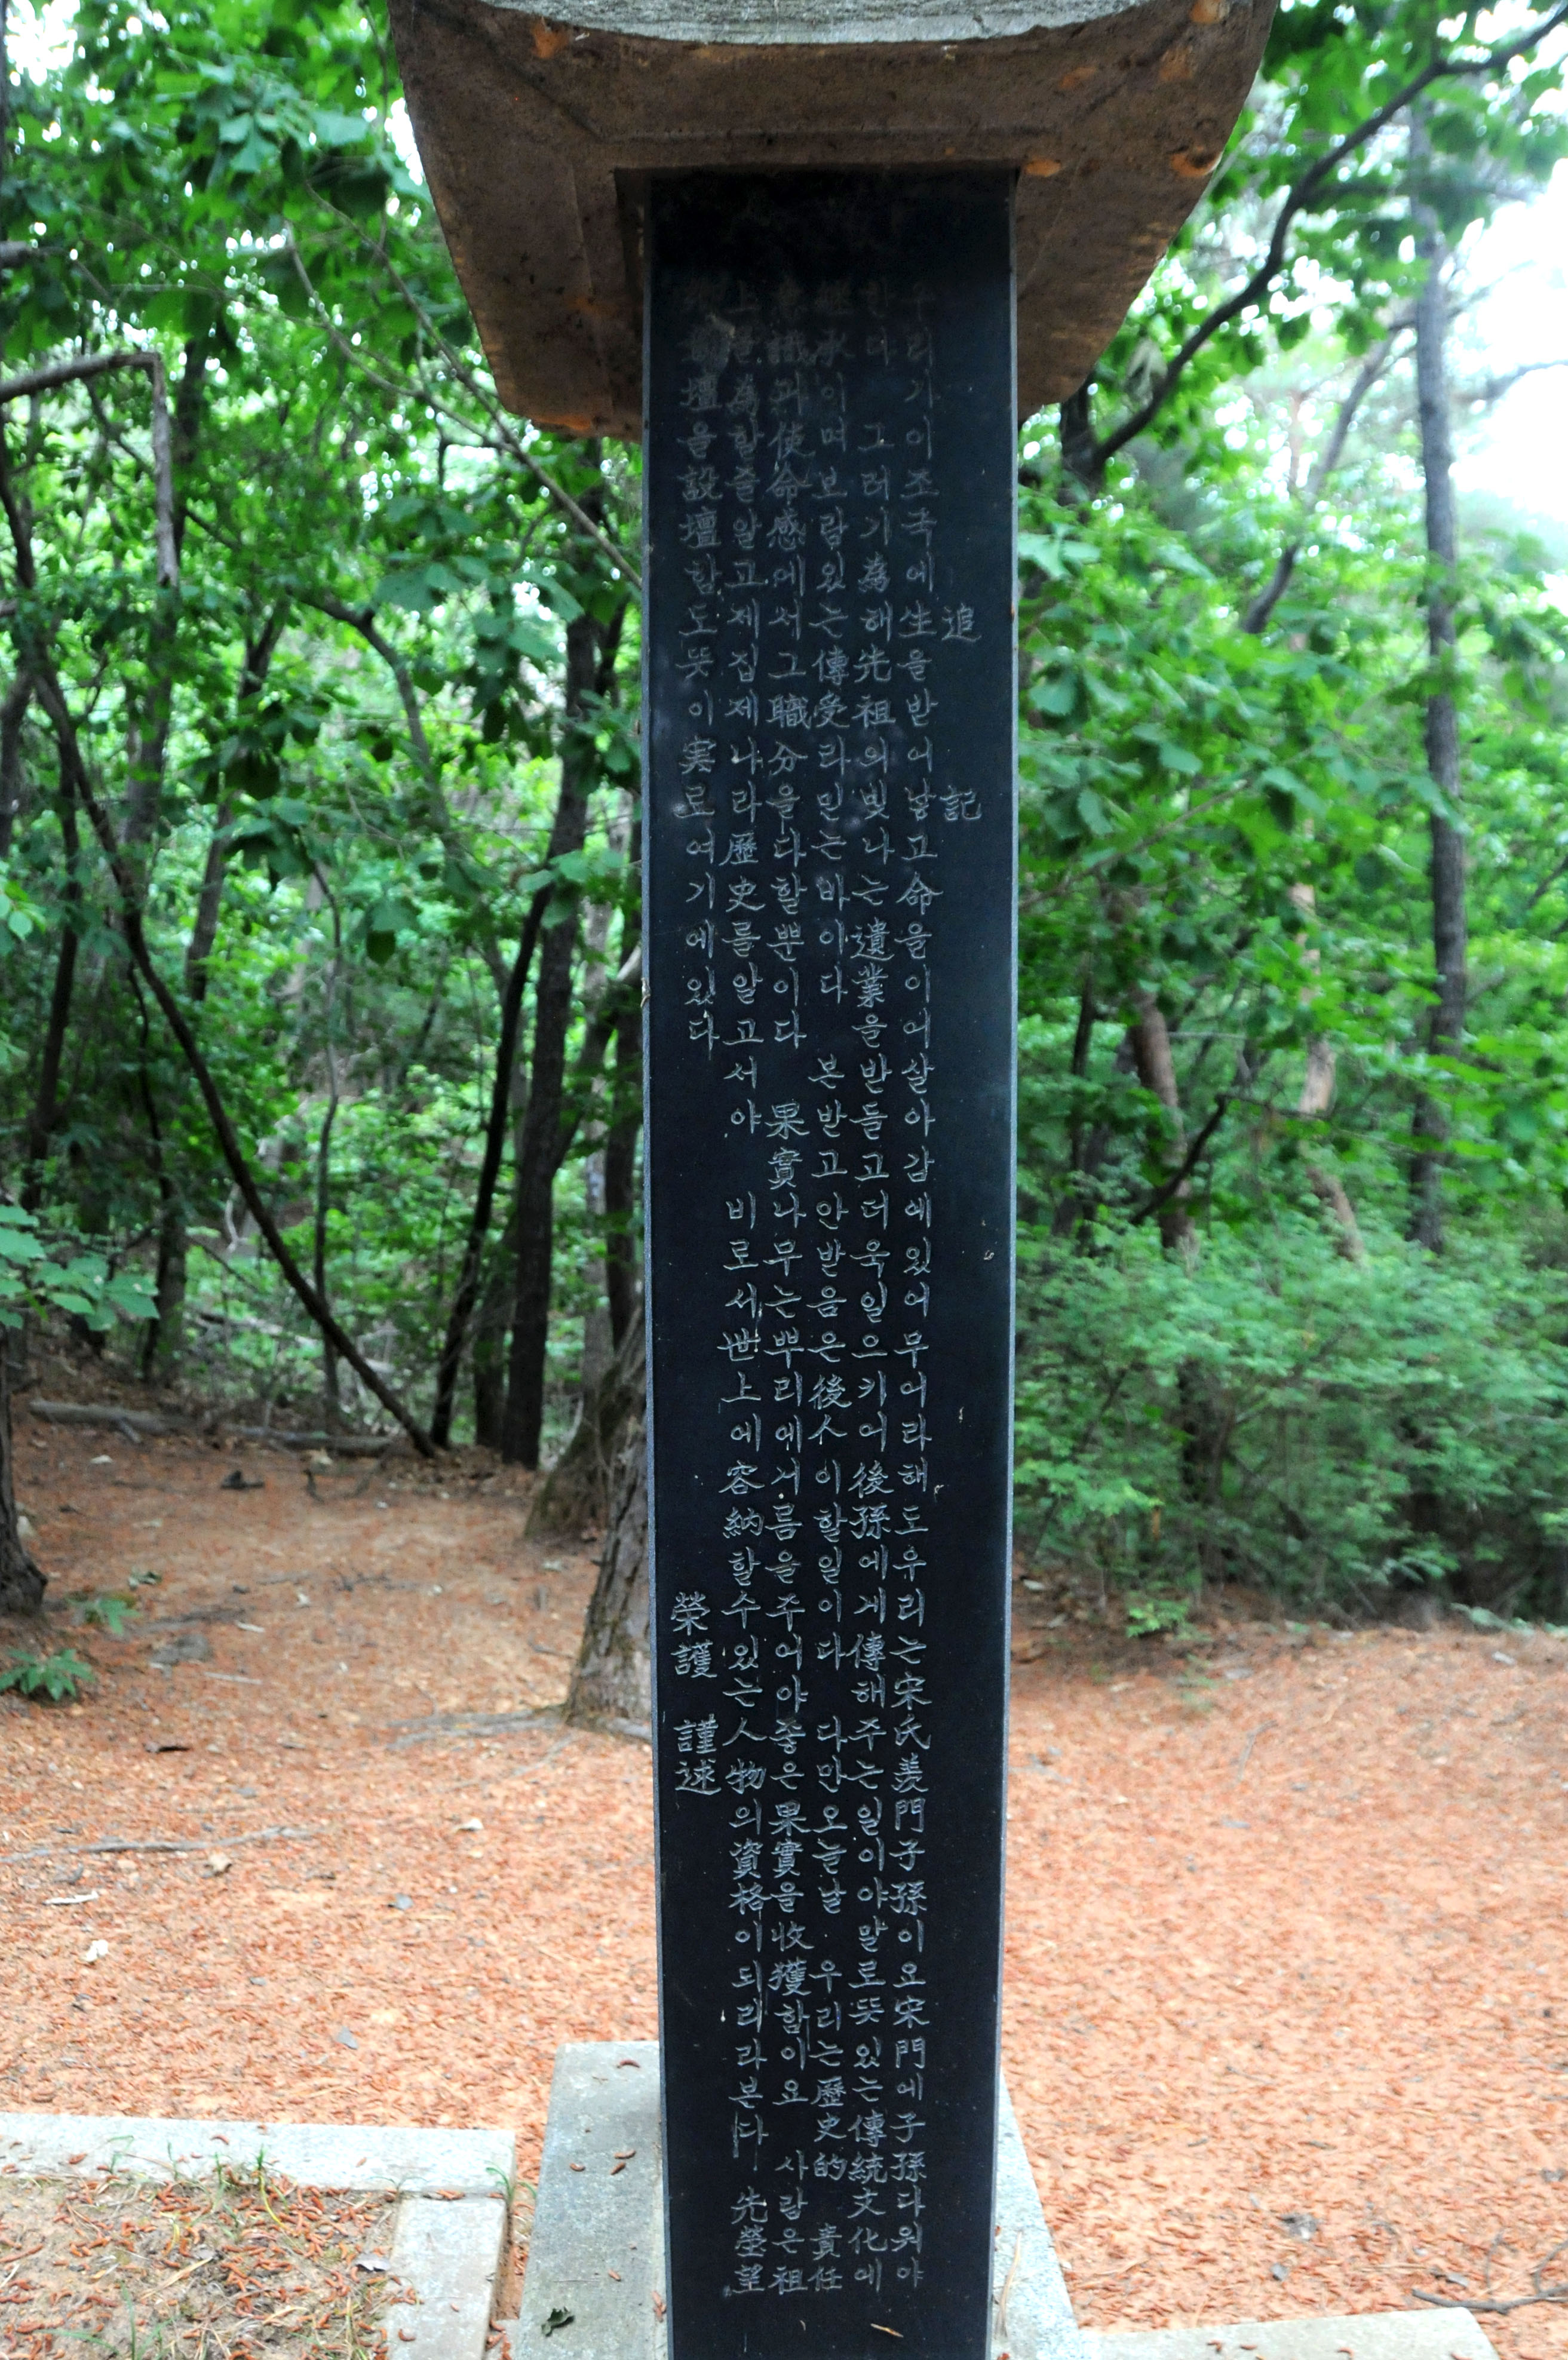 追 記
우리가이조국에生을받어났고命을이어살아감에있어무어라해도우리는宋氏羨門子孫이요宋門에子孫다워야
한다 그러기爲해先祖의빛나는遺業을받들고더욱일으키어後孫에게傳해주는일이야말로뜻있는傳統文化에
継承이며보람있는傳受라믿는바이다 본받고안받음은後人이할일이다 다만오늘날 우리는歷史的 責任
意識과使命感에서그職分을다할뿐이다 果實나무는뿌리에서름을주어야좋은果實을收獲함이요 사람은祖
上을爲할줄알고제집제나라歷史를알고서야 비로서世上에容納할수있는人物의資格이되리라본다 先塋望
壇을設壇함도뜻이実로여기에있다 榮護 謹述